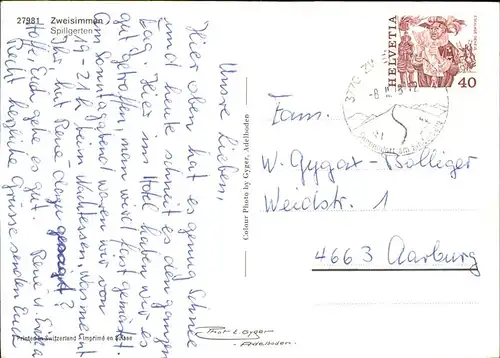 27981 Zweisimmen
Spillgerten
Unsre Lieben,
Hier oben hat es genug Schnee
und heute schneit es den ganzen
Tag. Hier im Hotel haben wir es
gut getroffen, man wird fast gemästet.
Am Sonntagabend waren wir von
19-21 h beim Nachtessen. Was meint
Ihr hat René dazu gesagt?
Hoffe Euch geht es gut.
Recht herzliche Grüsse senden Euch
René u.
HELVETIA
40
3770 ZW
Fam.
W. Gygax-Bolliger
Weidstr. 1
4663 Aarburg
Colour Photo by Gyger, Adelboden
Printed in Switzerland - Imprimé en Suisse
Phot E. Gyger
Adelboden